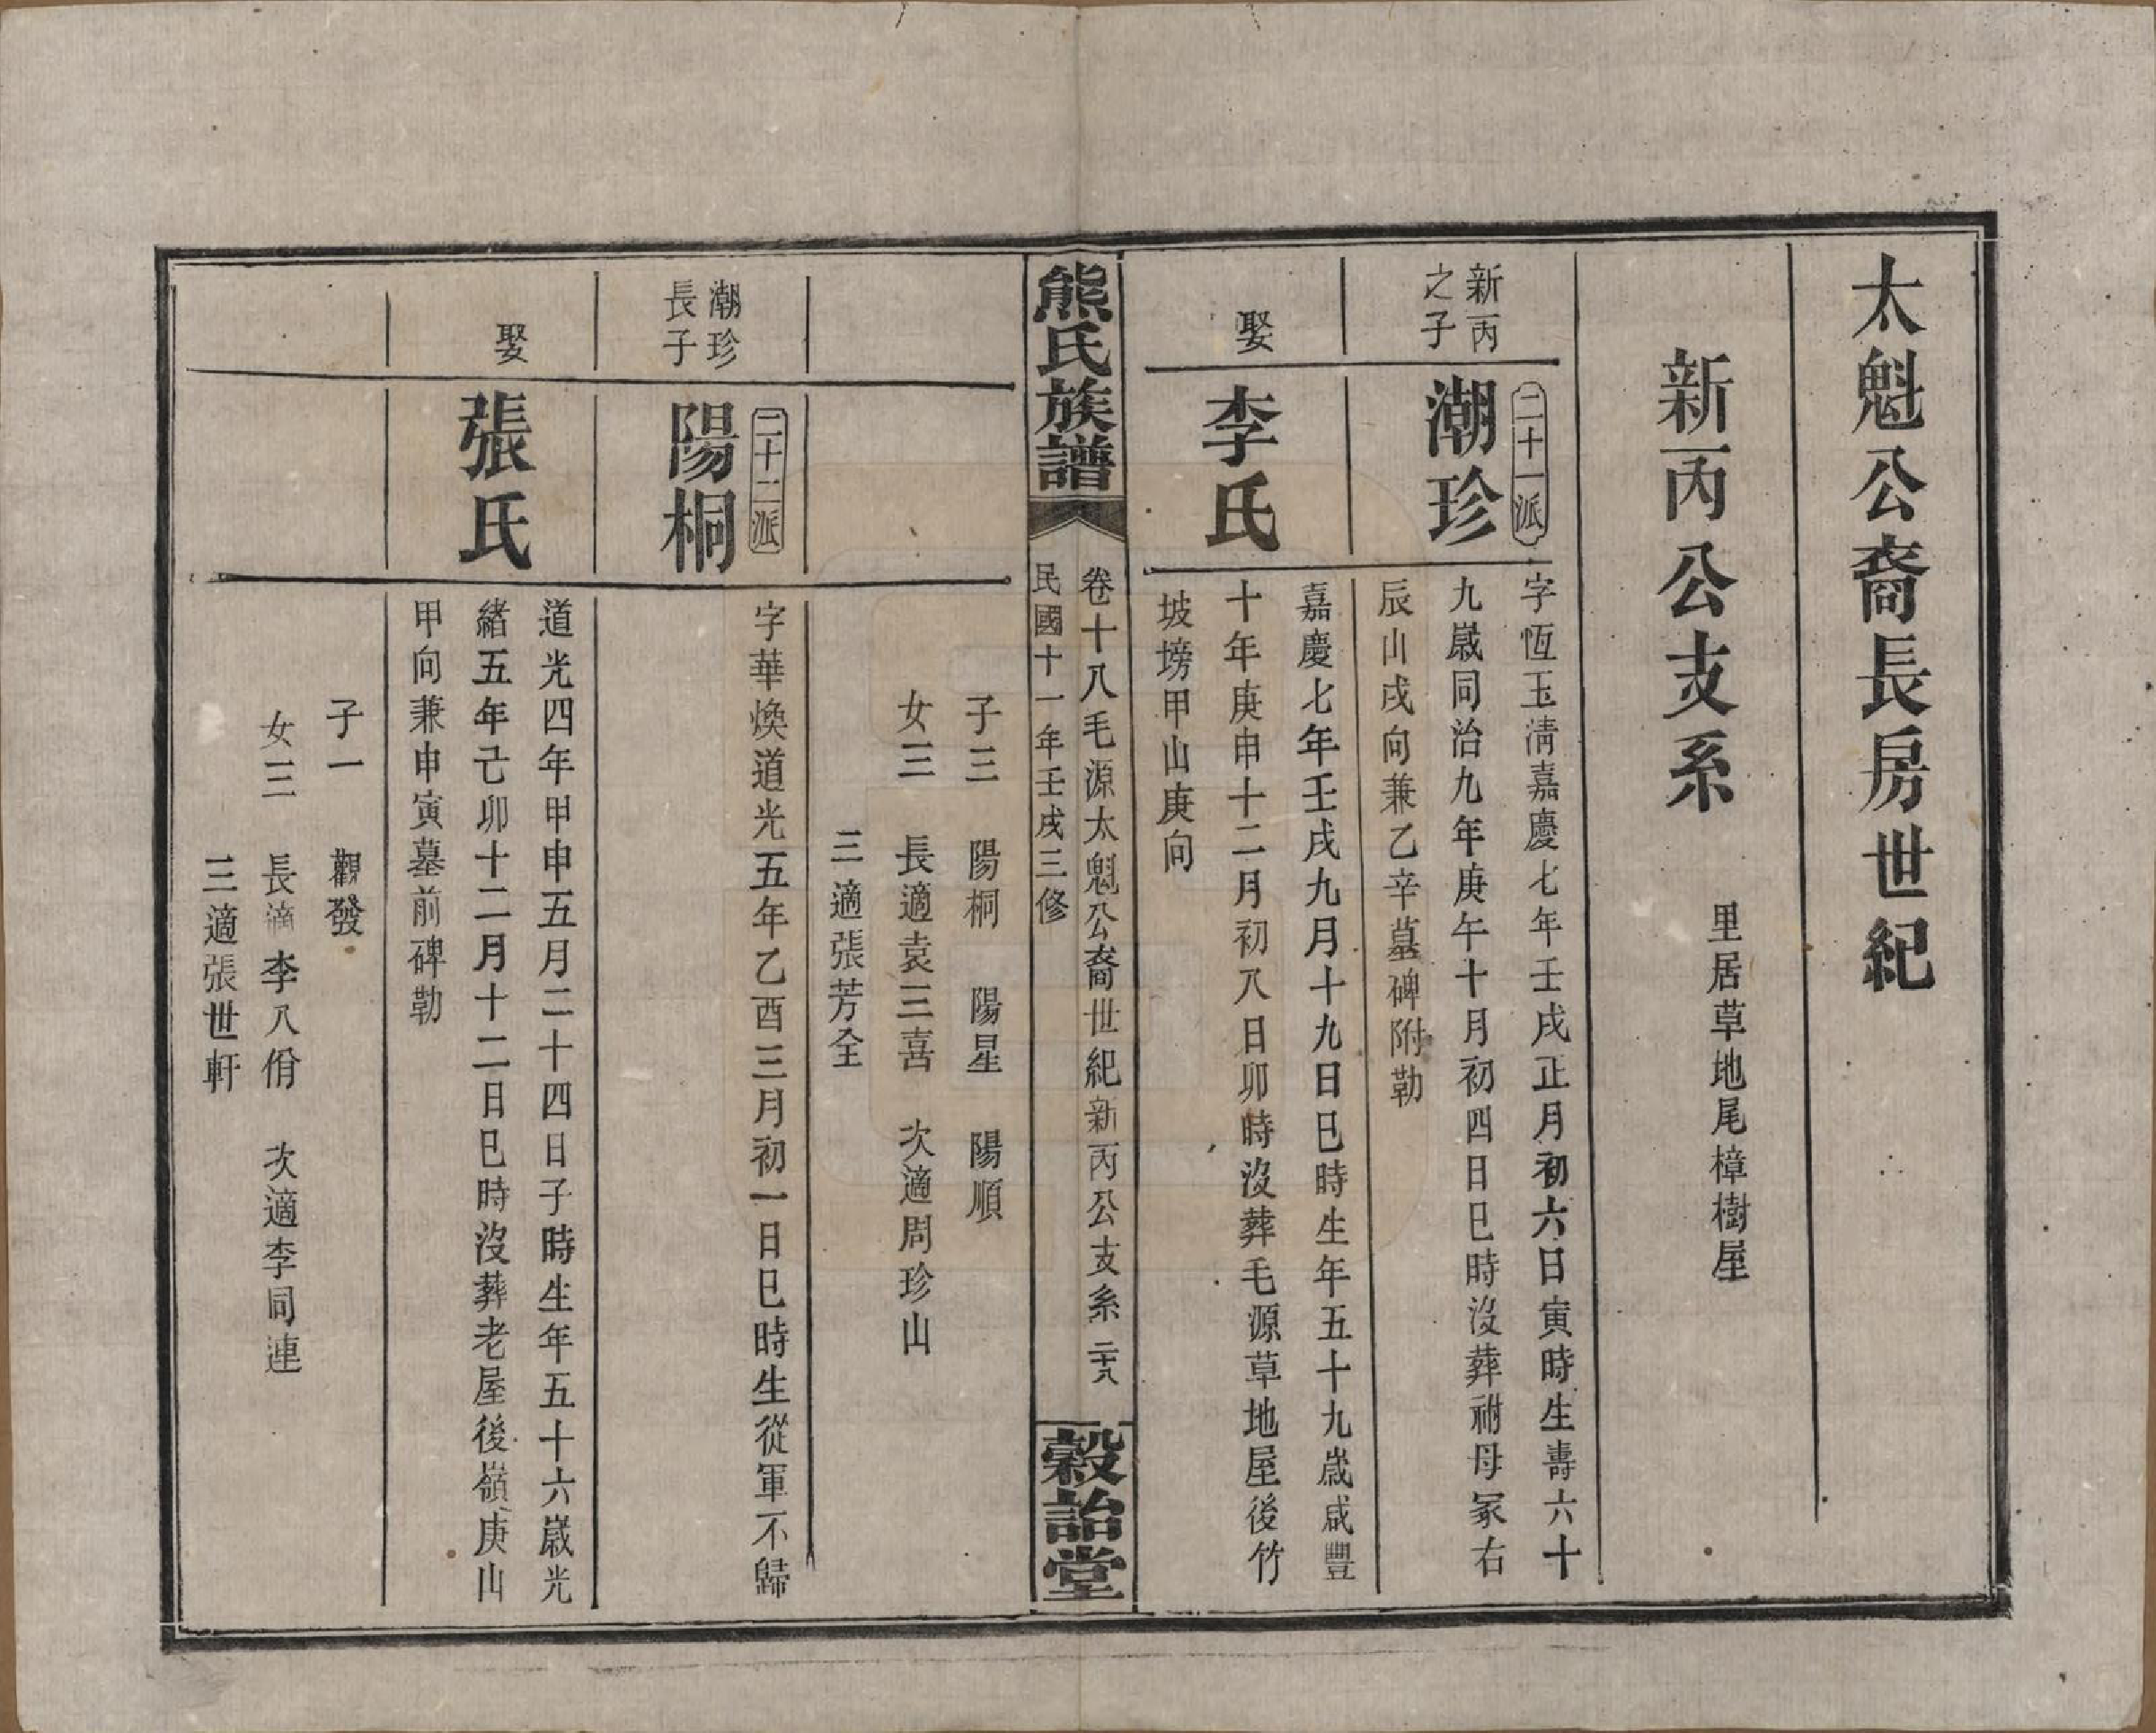 太魁公裔長房世紀
新丙公支系
里居草地尾樟樹屋
新丙
之子
二十一派
潮珍
字恆玉清嘉慶七年壬戌正月初六日寅時生壽六十
九歲同治九年庚午十月初四日巳時沒葬祔母冢右
辰山戌向兼乙辛墓碑附勒
娶
李氏
嘉慶七年壬戌九月十九日巳時生年五十九歲咸豐
十年庚申十二月初八日卯時沒葬毛源草地屋後竹
坡塝甲山庚向
熊氏族譜
卷十八毛源太魁公裔世紀新丙公支系 二十八
民國十一年壬戌三修
穀詒堂
子三 陽桐 陽星 陽順
女三 長適袁三喜 次適周珍山
三適張芳全
潮珍
長子
二十二派
陽桐
字華煥道光五年乙酉三月初一日巳時生從軍不歸
娶
張氏
道光四年甲申五月二十四日子時生年五十六歲光
緒五年己卯十二月十二日巳時沒葬老屋後嶺庚山
甲向兼申寅墓前碑勒
子一 觀發
女三 長適李八佾 次適李同連
三適張世軒